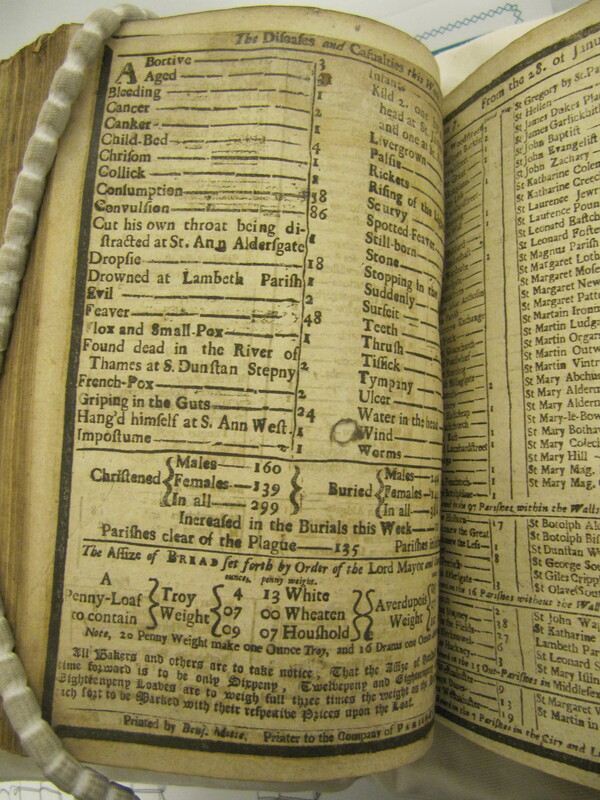 The Diseases and Casualties this W
ABortive 3
Aged
Bleeding 1
Cancer 2
Canker 1
Child-Bed 4
Chrisom 1
Collick 2
Consumption 58
Convulsion 86
Cut his own throat being di-
stracted at St. Ann Aldersgate 1
Dropsie 18
Drowned at Lambeth Parish 1
Evil 2
Feaver 48
Flox and Small-Pox
Found dead in the River of
Thames at S. Dunstan Stepny 2
French-Pox 2
Griping in the Guts 24
Hang'd himself at S. Ann West. 1
Impostume 1
Infants
Kild 2. one
head at St.
and one at
Livergrown
Palsie
Rickets
Rising of the
Scurvy
Spotted-Feaver
Still-born
Stone
Stopping in the
Suddenly
Surfeit
Teeth
Thrush
Tissick
Tympany
Ulcer
Water in the head
Wind
Worms
Christened { Males 160
Females 139
In all 299 }
Buried { Males
Females
In all
Increased in the Burials this Week
Parishes clear of the Plague 135 Parishes
The Assize of BREAD set forth by Order of the Lord Mayor and
ounces. penny weight.
A
Penny-Loaf
to contain
Troy
Weight
4 13 White
07 00 Wheaten
09 07 Houshold
Averdupois
Weight
Note, 20 Penny Weight make one Ounce Troy, and 16 Drams one Ounce
All Bakers and others are to take notice, That the Assize of
time forward is to be only Sixpeny, Twelvepeny and Eighteenpeny
Eighteenpeny Loaves are to weigh full three times the weight
each sort to be Marked with their respective Prices upon the Loaf.
Printed by Benj. Motte. Printer to the Company of
From the 28. of Janu
St Gregory by St. Pa
St Hellen
St James Dukes Pla
St James Garlickhith
St John Baptist
St John Evangelist
St John Zachary
St Katharine Colem
St Katharine Creec
St Laurence Jewry
St Laurence Poun
St Leonard Eastch
St Leonard Foster
St Magnus Parish
St Margaret Loth
St Margaret Mose
St Margaret New
St Margaret Patt
St Martin Ironm
St Martin Ludga
St Martin Orgar
St Martin Outw
St Martin Vintr
St Mary Abchu
St Mary Alderm
St Mary Alderm
St Mary-le-Bow
St Mary Bothaw
St Mary Colech
St Mary Hill
St Mary Mag.
St Mary Mag.
in the 97 Parishes within the Walls
St Botolph Al
St Botolph Bis
St Dunstan W
St George Sou
St Giles Crippl
St Olave Sout
in the 16 Parishes without the Wall
St John Wap
St Katharine
Lambeth Par
St Leonard S
St Mary Islin
in the 15 Out-Parishes in Middlesex
St Margaret W
St Martin in
Parishes in the City and